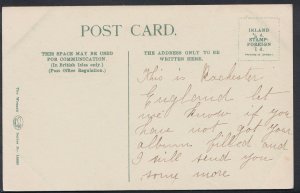 POST CARD.
THIS SPACE MAY BE USED
FOR COMMUNICATION
(In British Isles only.)
(Post Office Regulation.)
THE ADDRESS ONLY TO BE
WRITTEN HERE.
INLAND
½ d.
STAMP.
FOREIGN
1 d.
This is Rochester
England let
me know if you
have not got your
album filled and
I will send you
some more